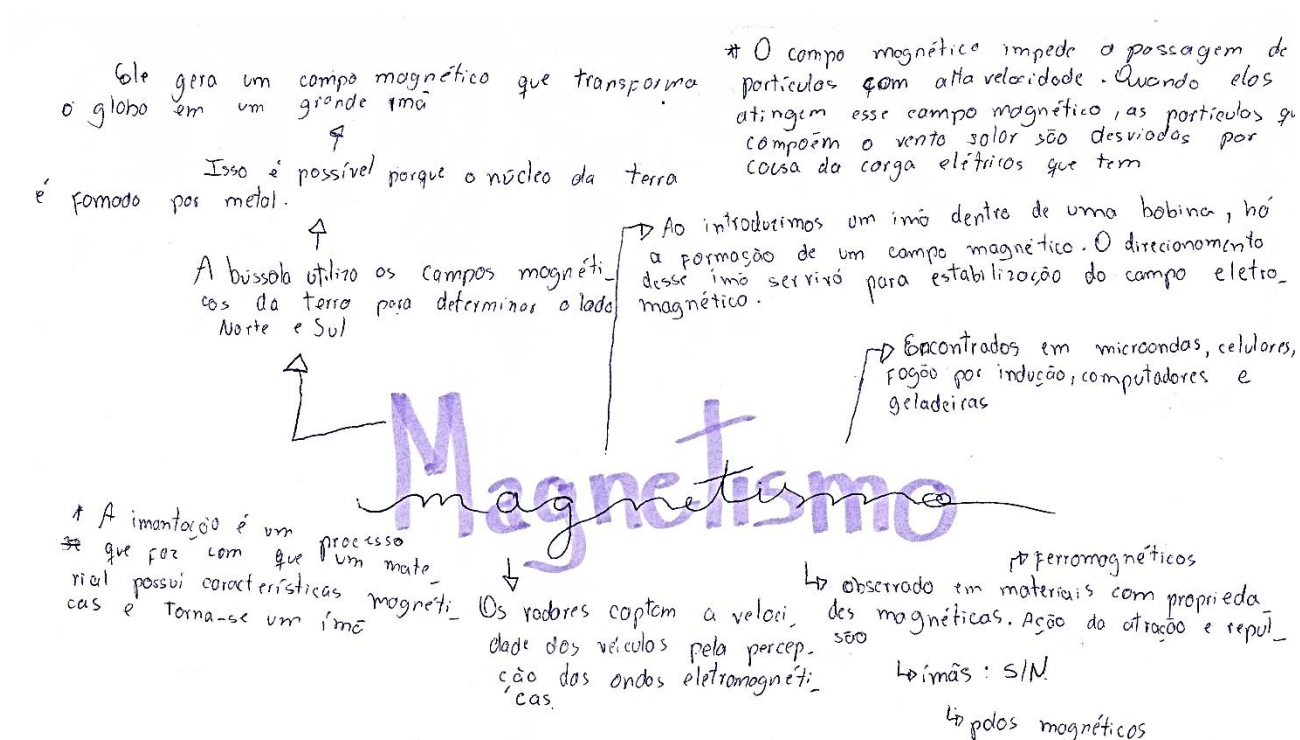 Ele gera um campo magnético que transforma
o globo em um grande imã
Isso é possível porque o núcleo da terra
é fomado por metal.
A bússola utiliza os campos magnéti-
cos da terra para determinar o lado
Norte e Sul
* O campo magnético impede a passagem de
partículas com alta velocidade. Quando elas
atingem esse campo magnético, as partículas qu
compõem o vento solar são desviadas por
causa da carga elétricas que tem
Ao introduzimos um imã dentro de uma bobina, há
a formação de um campo magnético. O direcionamento
desse imã servirá para estabilização do campo eletro-
magnético.
Encontrados em microondas, celulares,
fogão por indução, computadores e
geladeiras
Magnetismo
magnetismo
* A imantação é um processo
que faz com que um mate-
rial possui características magnéti-
cas e torna-se um ímã
Os radares captam a veloci-
dade dos veículos pela percep-
ção das ondas eletromagnéti-
cas.
ferromagnéticos
observado em materiais com proprieda-
des magnéticas. Ação da atração e repul-
são
ímãs: S/N
polos magnéticos